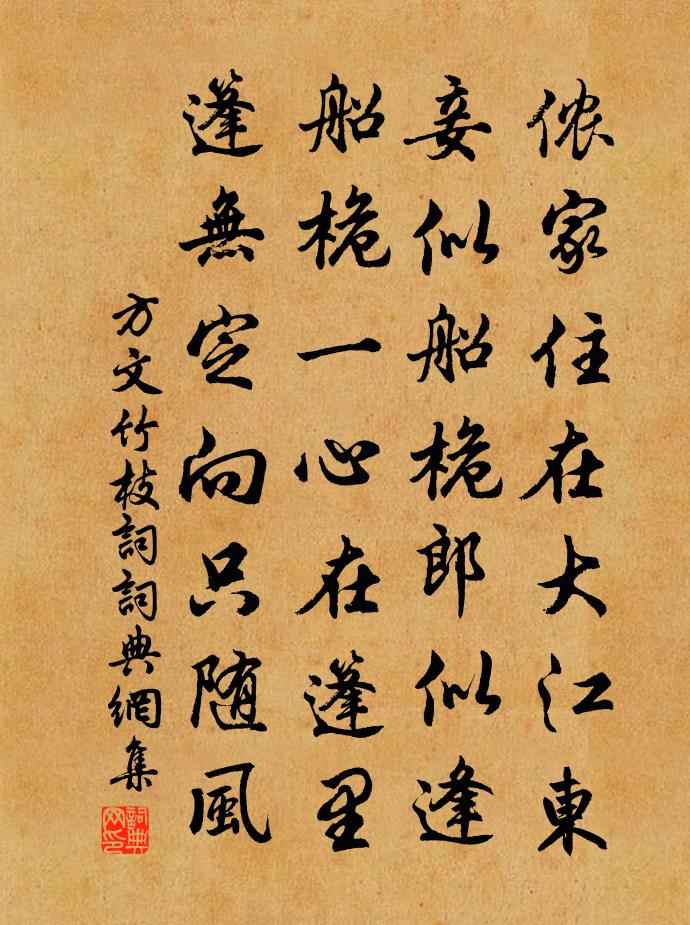 侬家住在大江東
妾似船桅郎似逢
船桅一心在篷里
篷無定向只随風
方文竹枝詞詞典網集
詞典网印